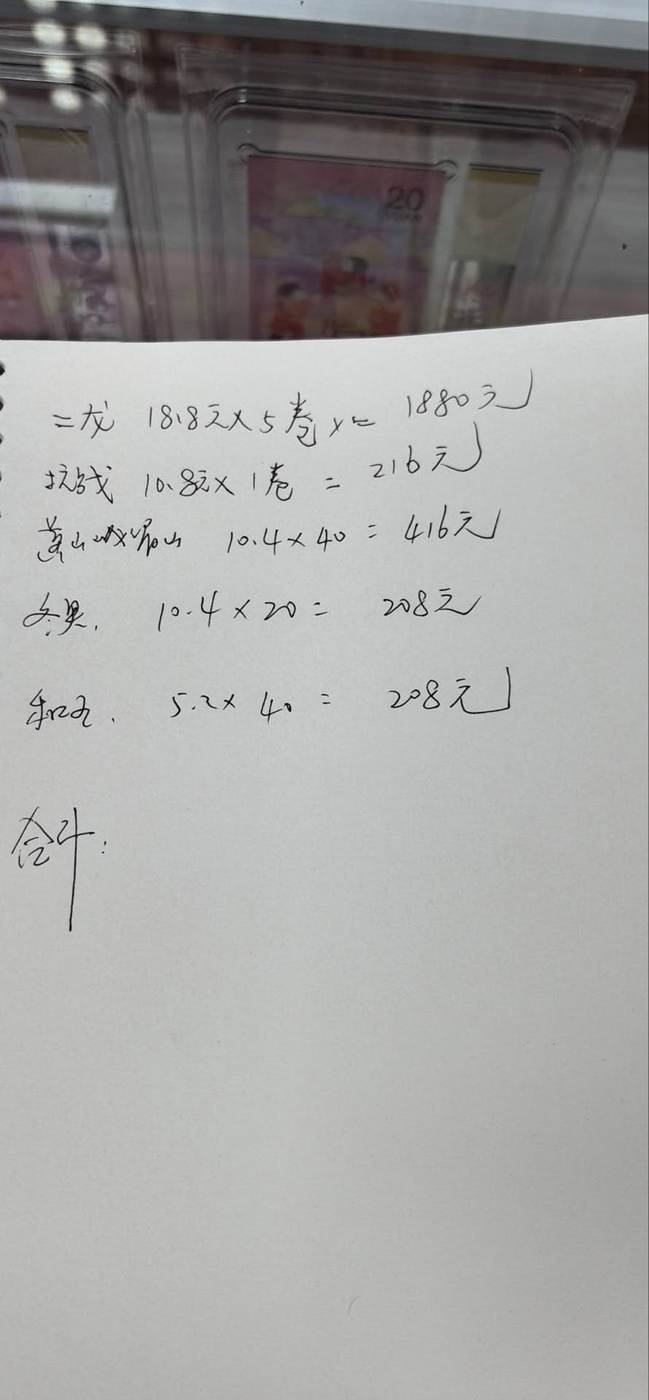 20
二龙 18.8元×5卷×= 1880元
抗战 10.8元×1卷 = 216元
黄山峨眉山 10.4×40= 416元
冬奥. 10.4×20= 208元
和龙. 5.2×40= 208元
合计: